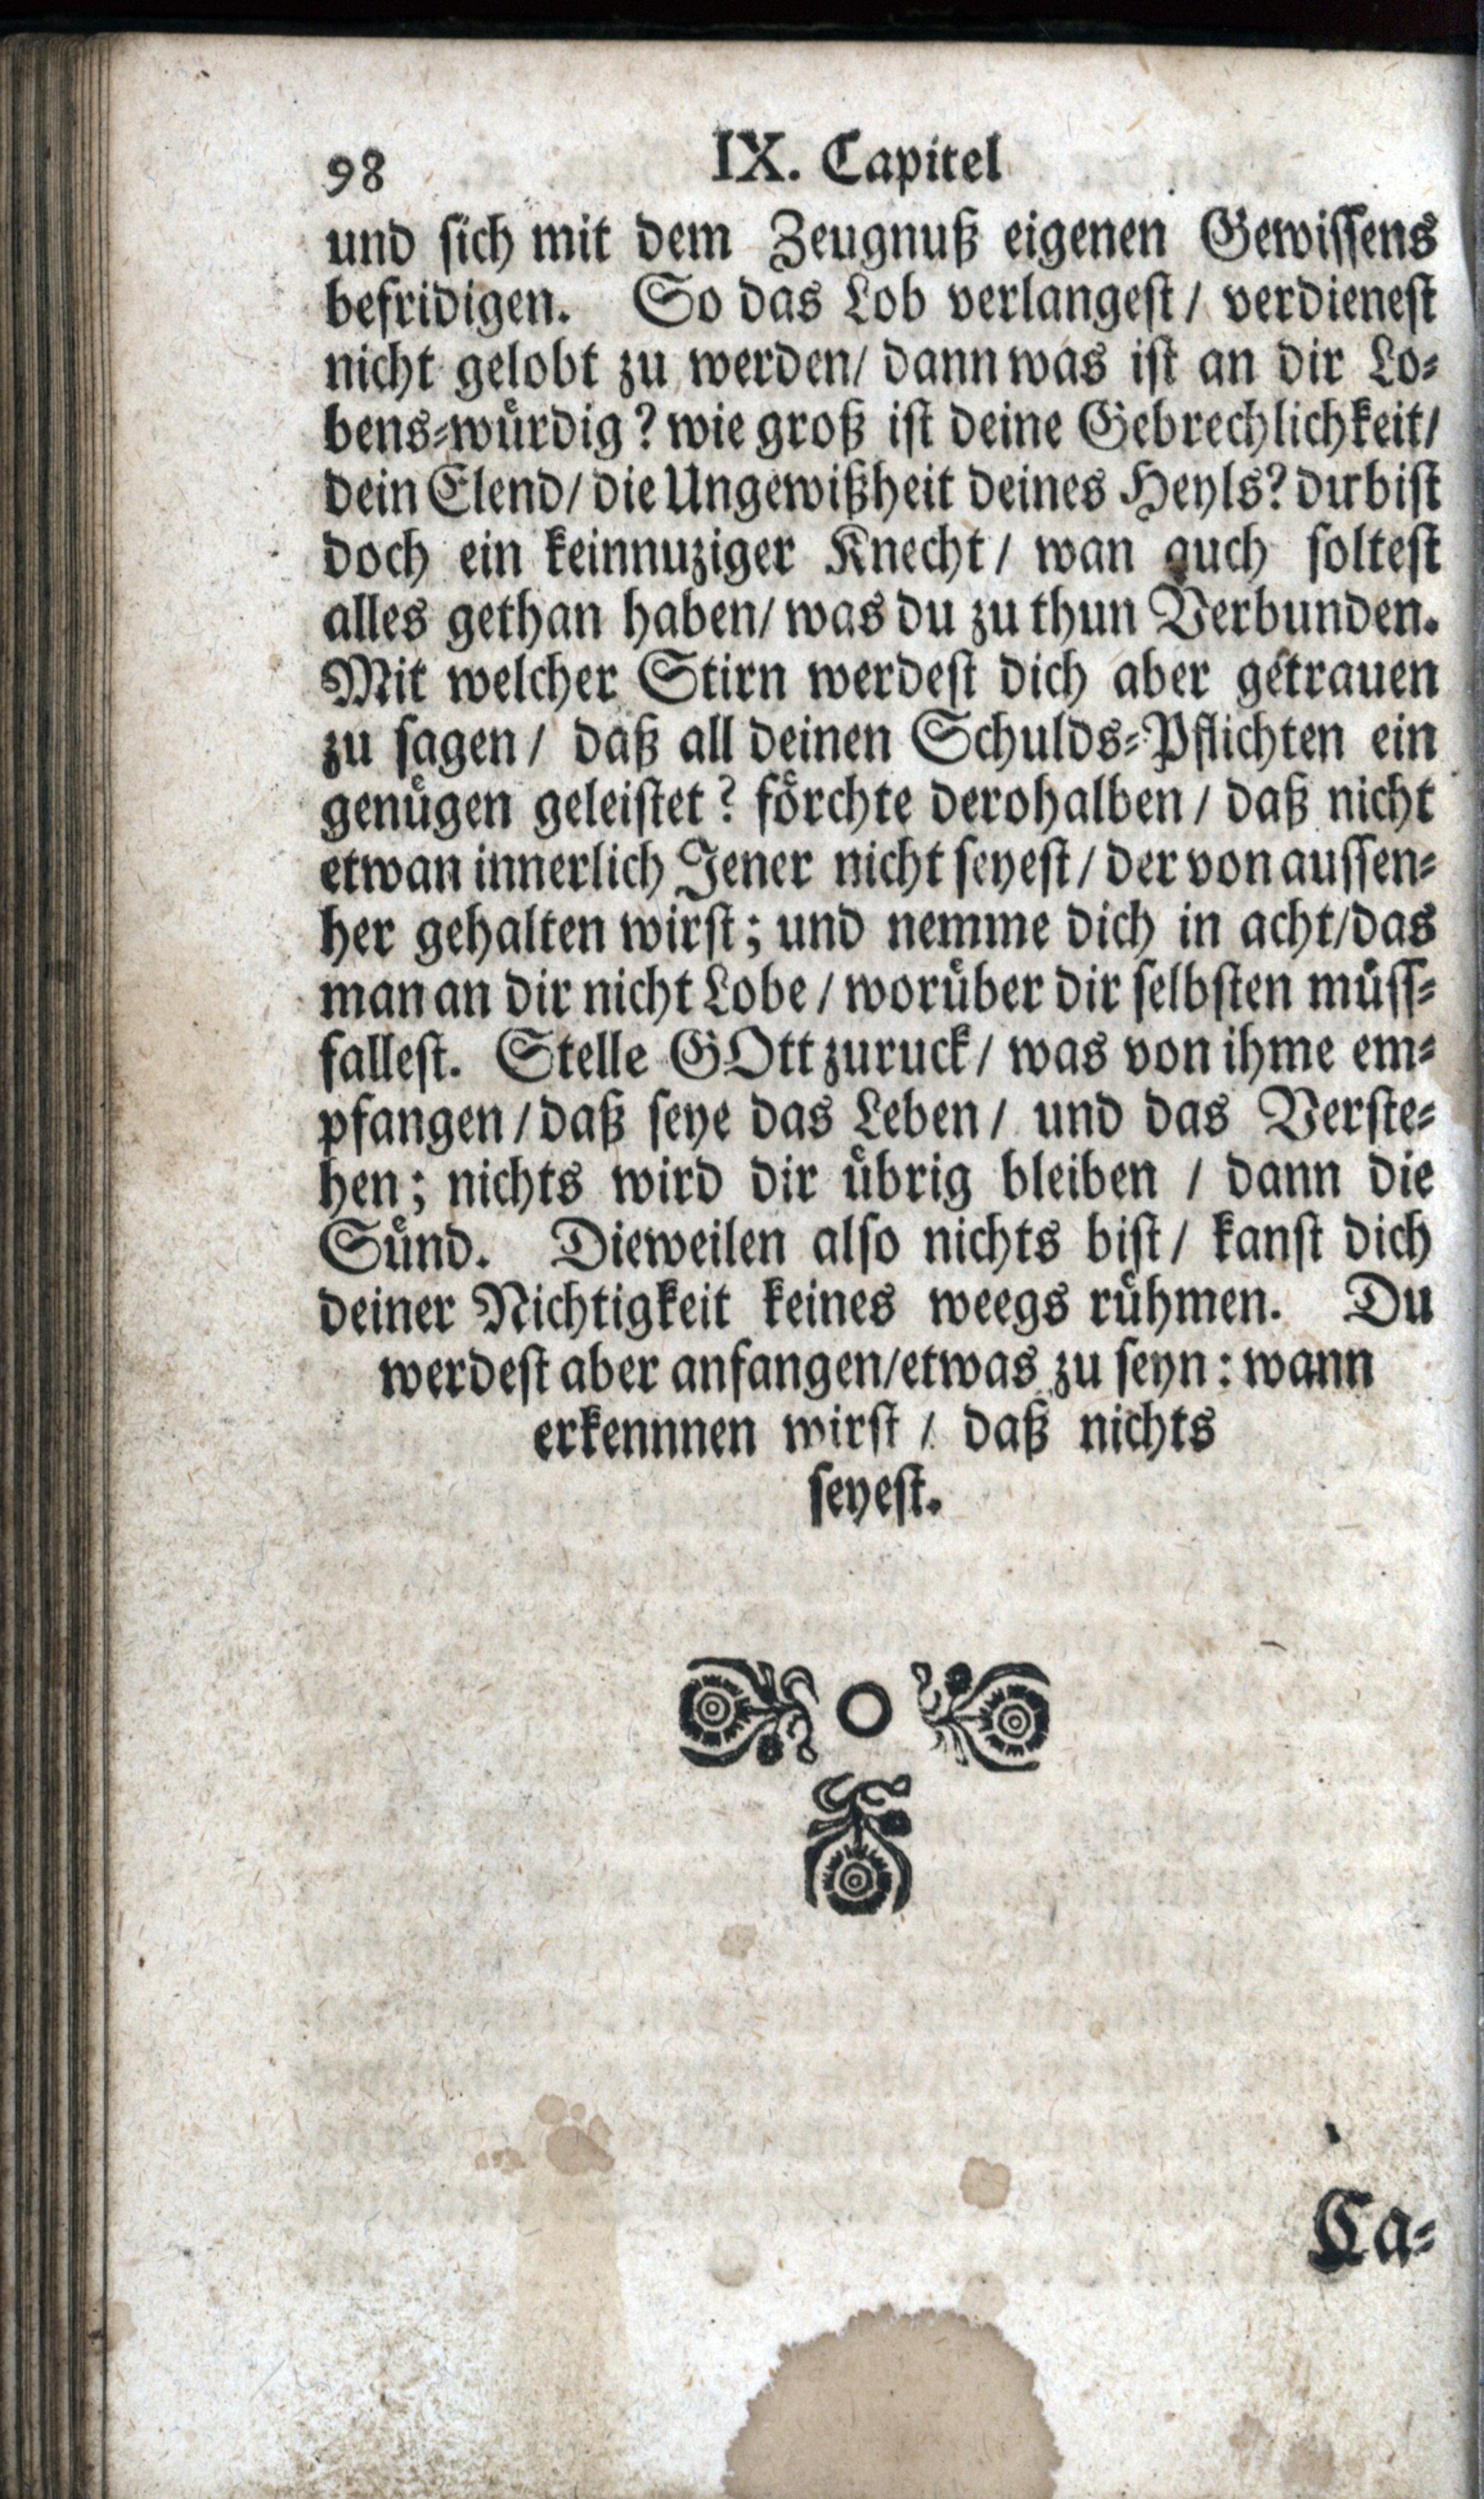 98 IX. Capitel
und sich mit dem Zeugnuß eigenen Gewissens
befridigen. So das Lob verlangest / verdienest
nicht gelobt zu werden / dann was ist an dir Lo⸗
bens⸗würdig? wie groß ist deine Gebrechlichkeit /
dein Elend / die Ungewißheit deines Heyls? du bist
doch ein keinnuziger Knecht / wan auch soltest
alles gethan haben / was du zu thun Verbunden.
Mit welcher Stirn werdest dich aber getrauen
zu sagen / daß all deinen Schulds⸗Pflichten ein
genügen geleistet? förchte derohalben / daß nicht
etwan innerlich Jener nicht seyest / der von aussen⸗
her gehalten wirst; und nemme dich in acht / das
man an dir nicht Lobe / worüber dir selbsten müss⸗
fallest. Stelle GOtt zuruck / was von ihme em⸗
pfangen / daß seye das Leben / und das Verste⸗
hen; nichts wird dir übrig bleiben / dann die
Sünd. Dieweilen also nichts bist / kanst dich
deiner Nichtigkeit keines weegs rühmen. Du
werdest aber anfangen / etwas zu seyn: wann
erkennnen wirst / daß nichts
seyest.
Ca⸗